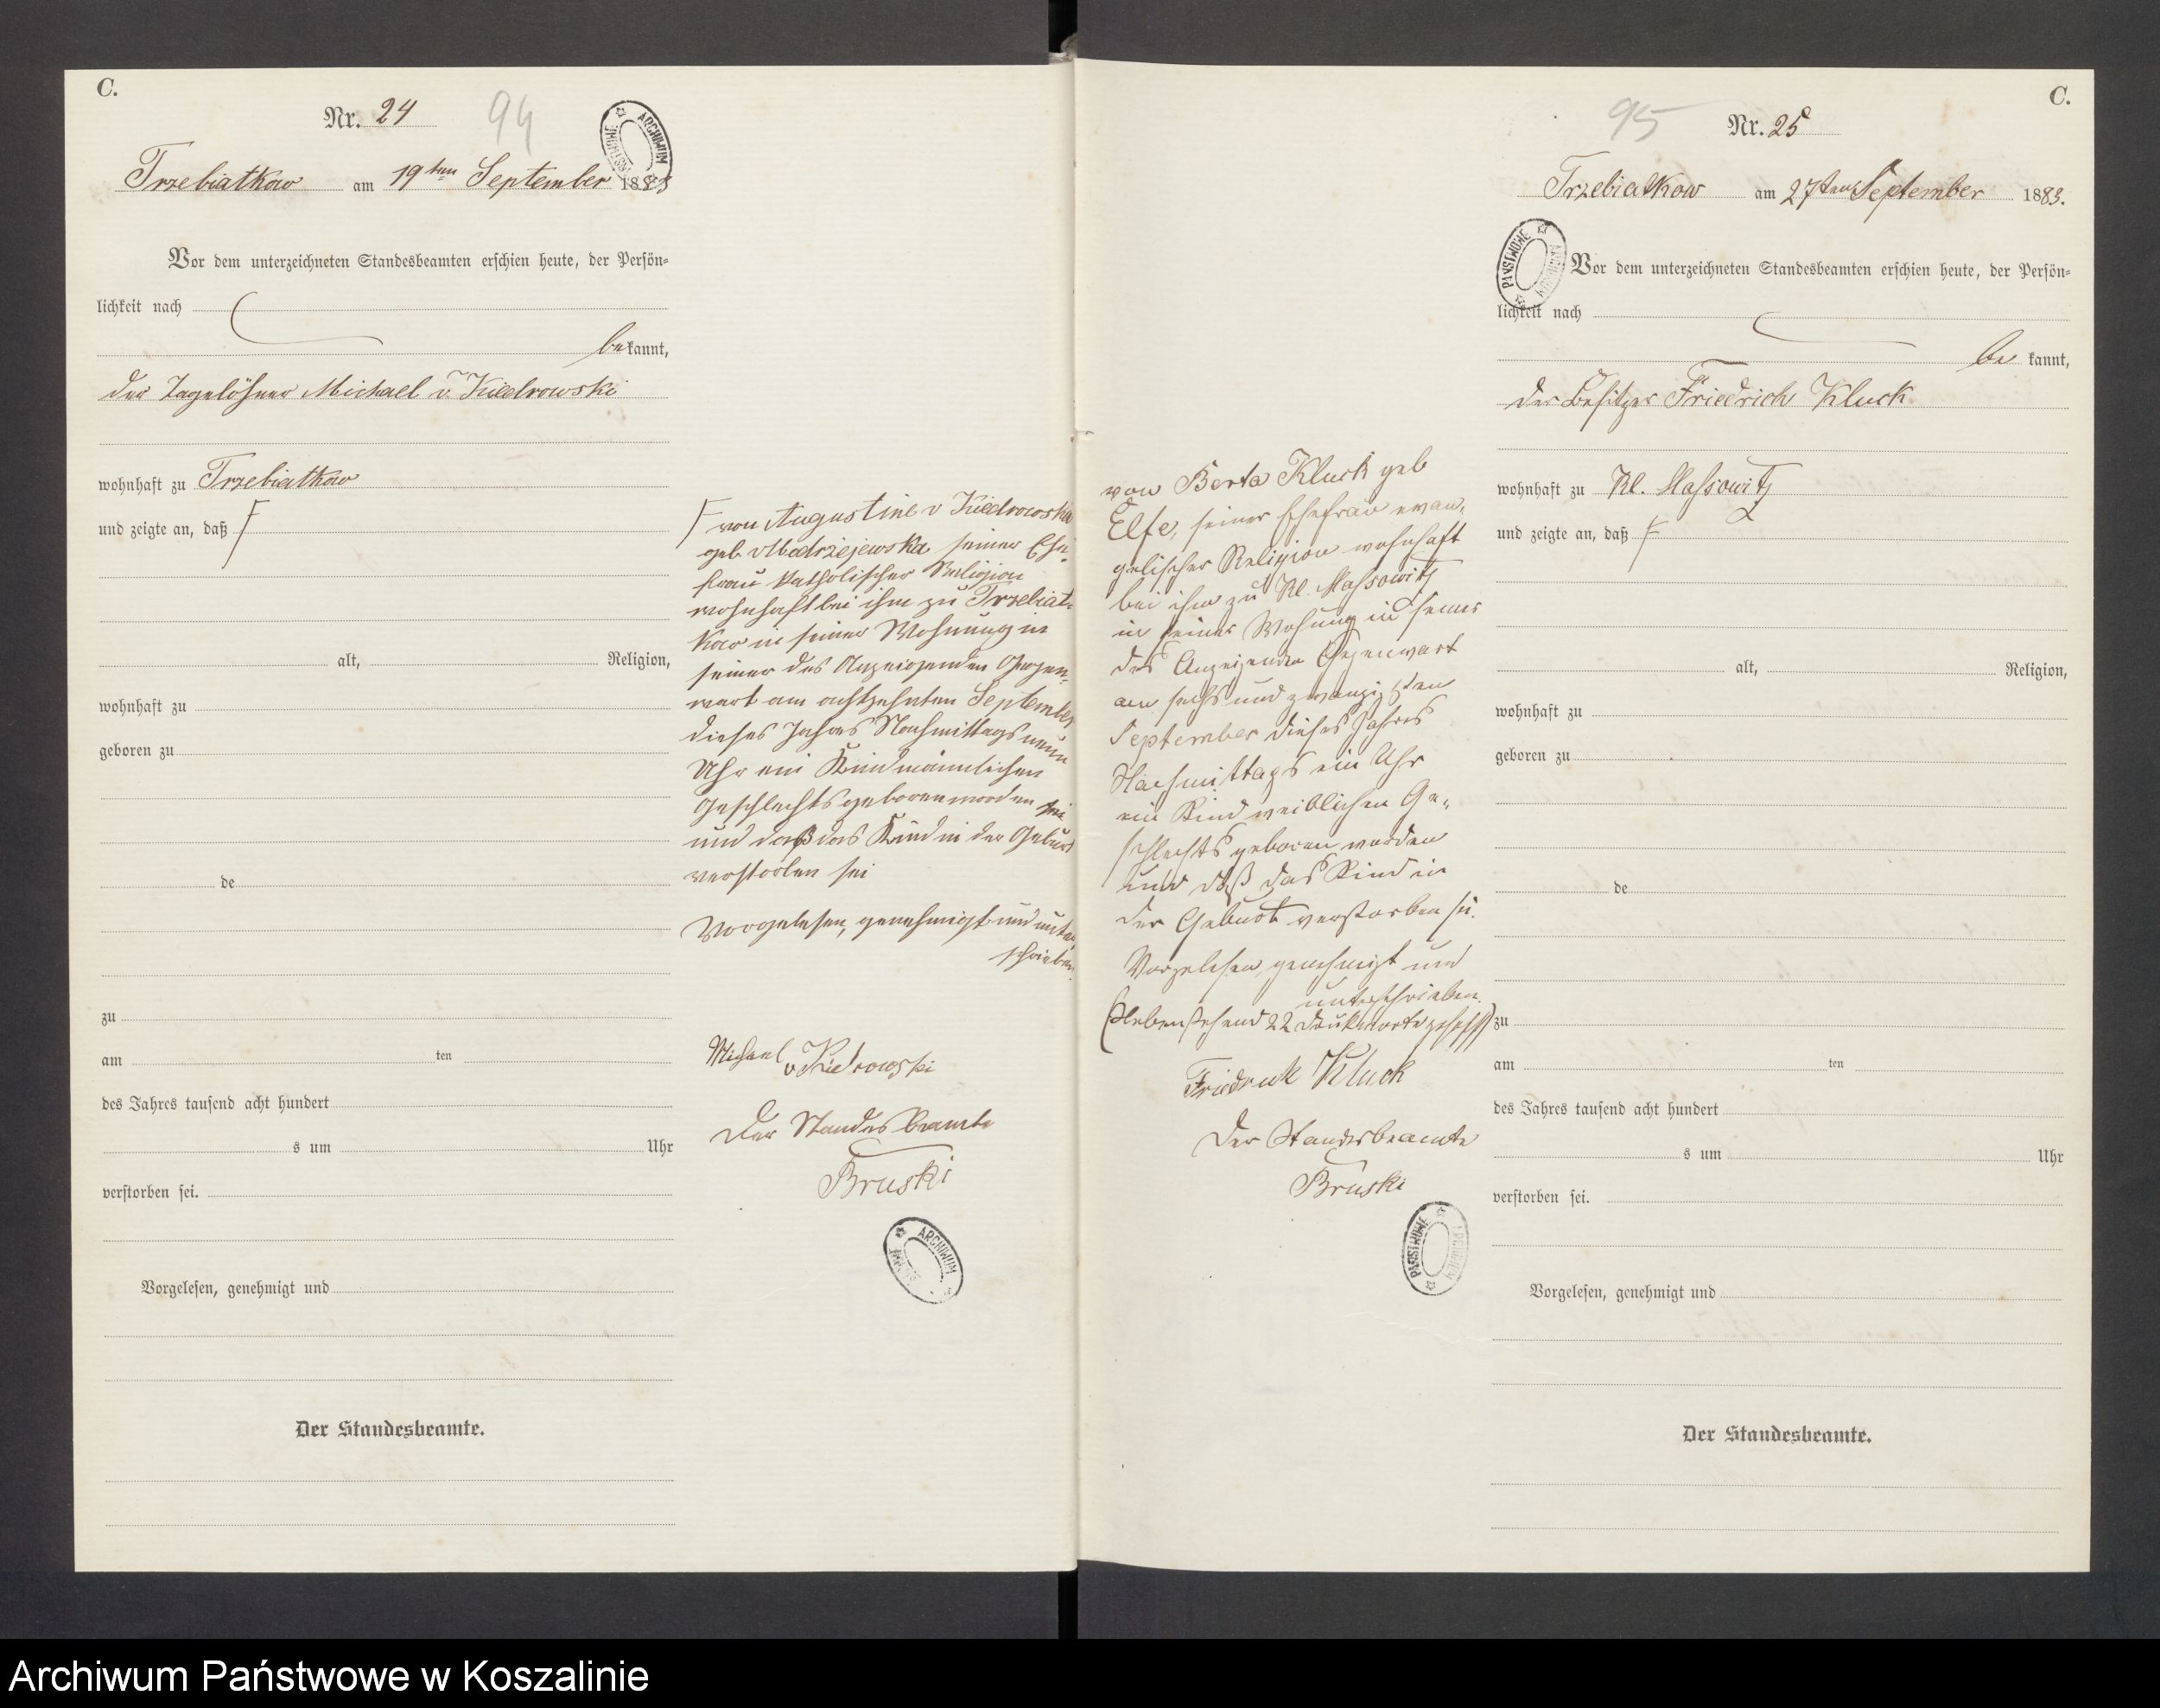 C.
Nr. 24
94
Trzebiatkow am 19ten September 1883
Vor dem unterzeichneten Standesbeamten erschien heute, der Persön-
lichkeit nach
bekannt,
der Tagelöhner Michael v. Kiedrowski
wohnhaft zu Trzebiatkow
und zeigte an, daß
alt, Religion,
wohnhaft zu
geboren zu
de
zu
am ten
des Jahres tausend acht hundert
s um Uhr
verstorben sei.
Vorgelesen, genehmigt und
Der Standesbeamte.
von Augustine v Kiedrowska
geb. Madziejewska seiner Ehe-
frau katholischer Religion
wohnhaft bei ihm zu Trzebiat-
kow in seiner Wohnung in
seiner des Anzeigenden Gegen-
wart am achtzehnten September
dieses Jahres Nachmittags neun
Uhr ein Kind männlichen
Geschlechts geboren worden sei
und daß das Kind in der Geburt
verstorben sei
Vorgelesen, genehmigt und unter
schrieben
Michael
v Kiedrowski
Der Standesbeamte
Bruski
ARCHIWUM PAŃSTWOWE
von Berta Kluck geb
Elfe, seiner Ehefrau evan-
gelischer Religion wohnhaft
bei ihm zu Kl. Massowitz
in seiner Wohnung in seiner
des Anzeigenden Gegenwart
am sechs und zwanzigsten
September dieses Jahres
Nachmittags ein Uhr
ein Kind weiblichen Ge-
schlechts geboren worden
und daß das Kind in
der Geburt verstorben sei.
Vorgelesen, genehmigt und
unterschrieben.
(Nebenstehend 22 Druckworte
Friedrich Kluck
Der Standesbeamte
Bruski
PAŃSTWOWE ARCHIWUM
C.
95
Nr. 25
Trzebiatkow am 27ten September 1883.
Vor dem unterzeichneten Standesbeamten erschien heute, der Persön-
lichkeit nach
be kannt,
der Besitzer Friedrich Kluck
wohnhaft zu Kl. Massowitz
und zeigte an, daß
alt, Religion,
wohnhaft zu
geboren zu
de
zu
am ten
des Jahres tausend acht hundert
s um Uhr
verstorben sei.
Vorgelesen, genehmigt und
Der Standesbeamte.
Archiwum Państwowe w Koszalinie